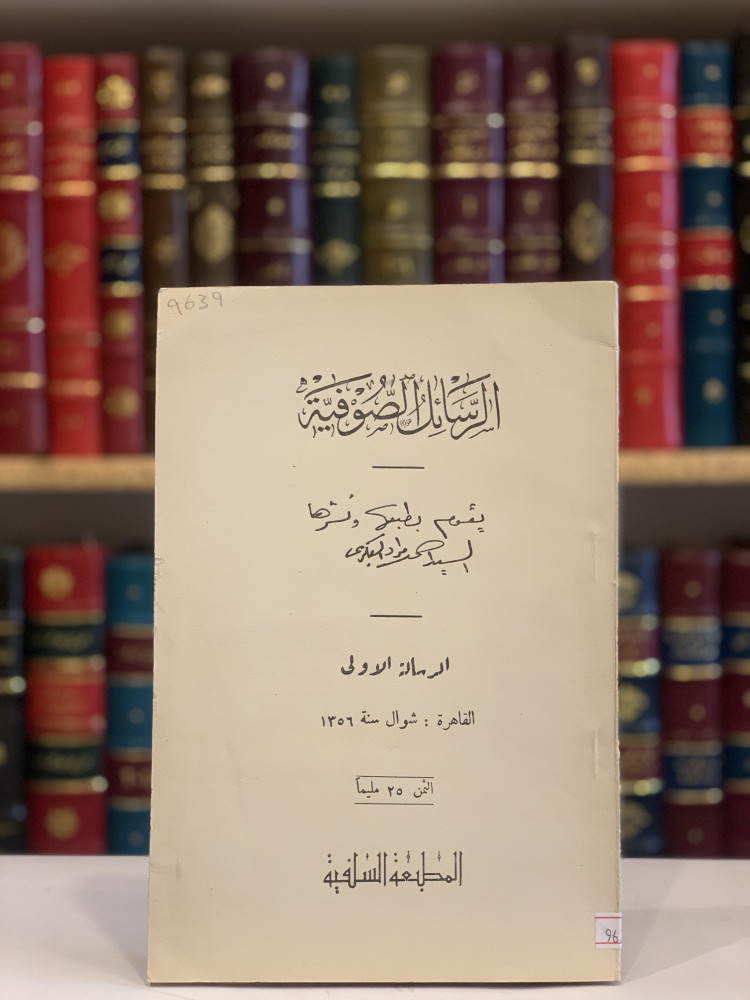 9639
الرَّسَائِلُ الصُّوْفِيَّة
يقوم بطبعها ونشرها
السيد احمد مراد البكرى
الرسالة الاولى
القاهرة : شوال سنة ١٣٥٦
الثمن ٢٥ مليماً
المطبعة السلفية
96